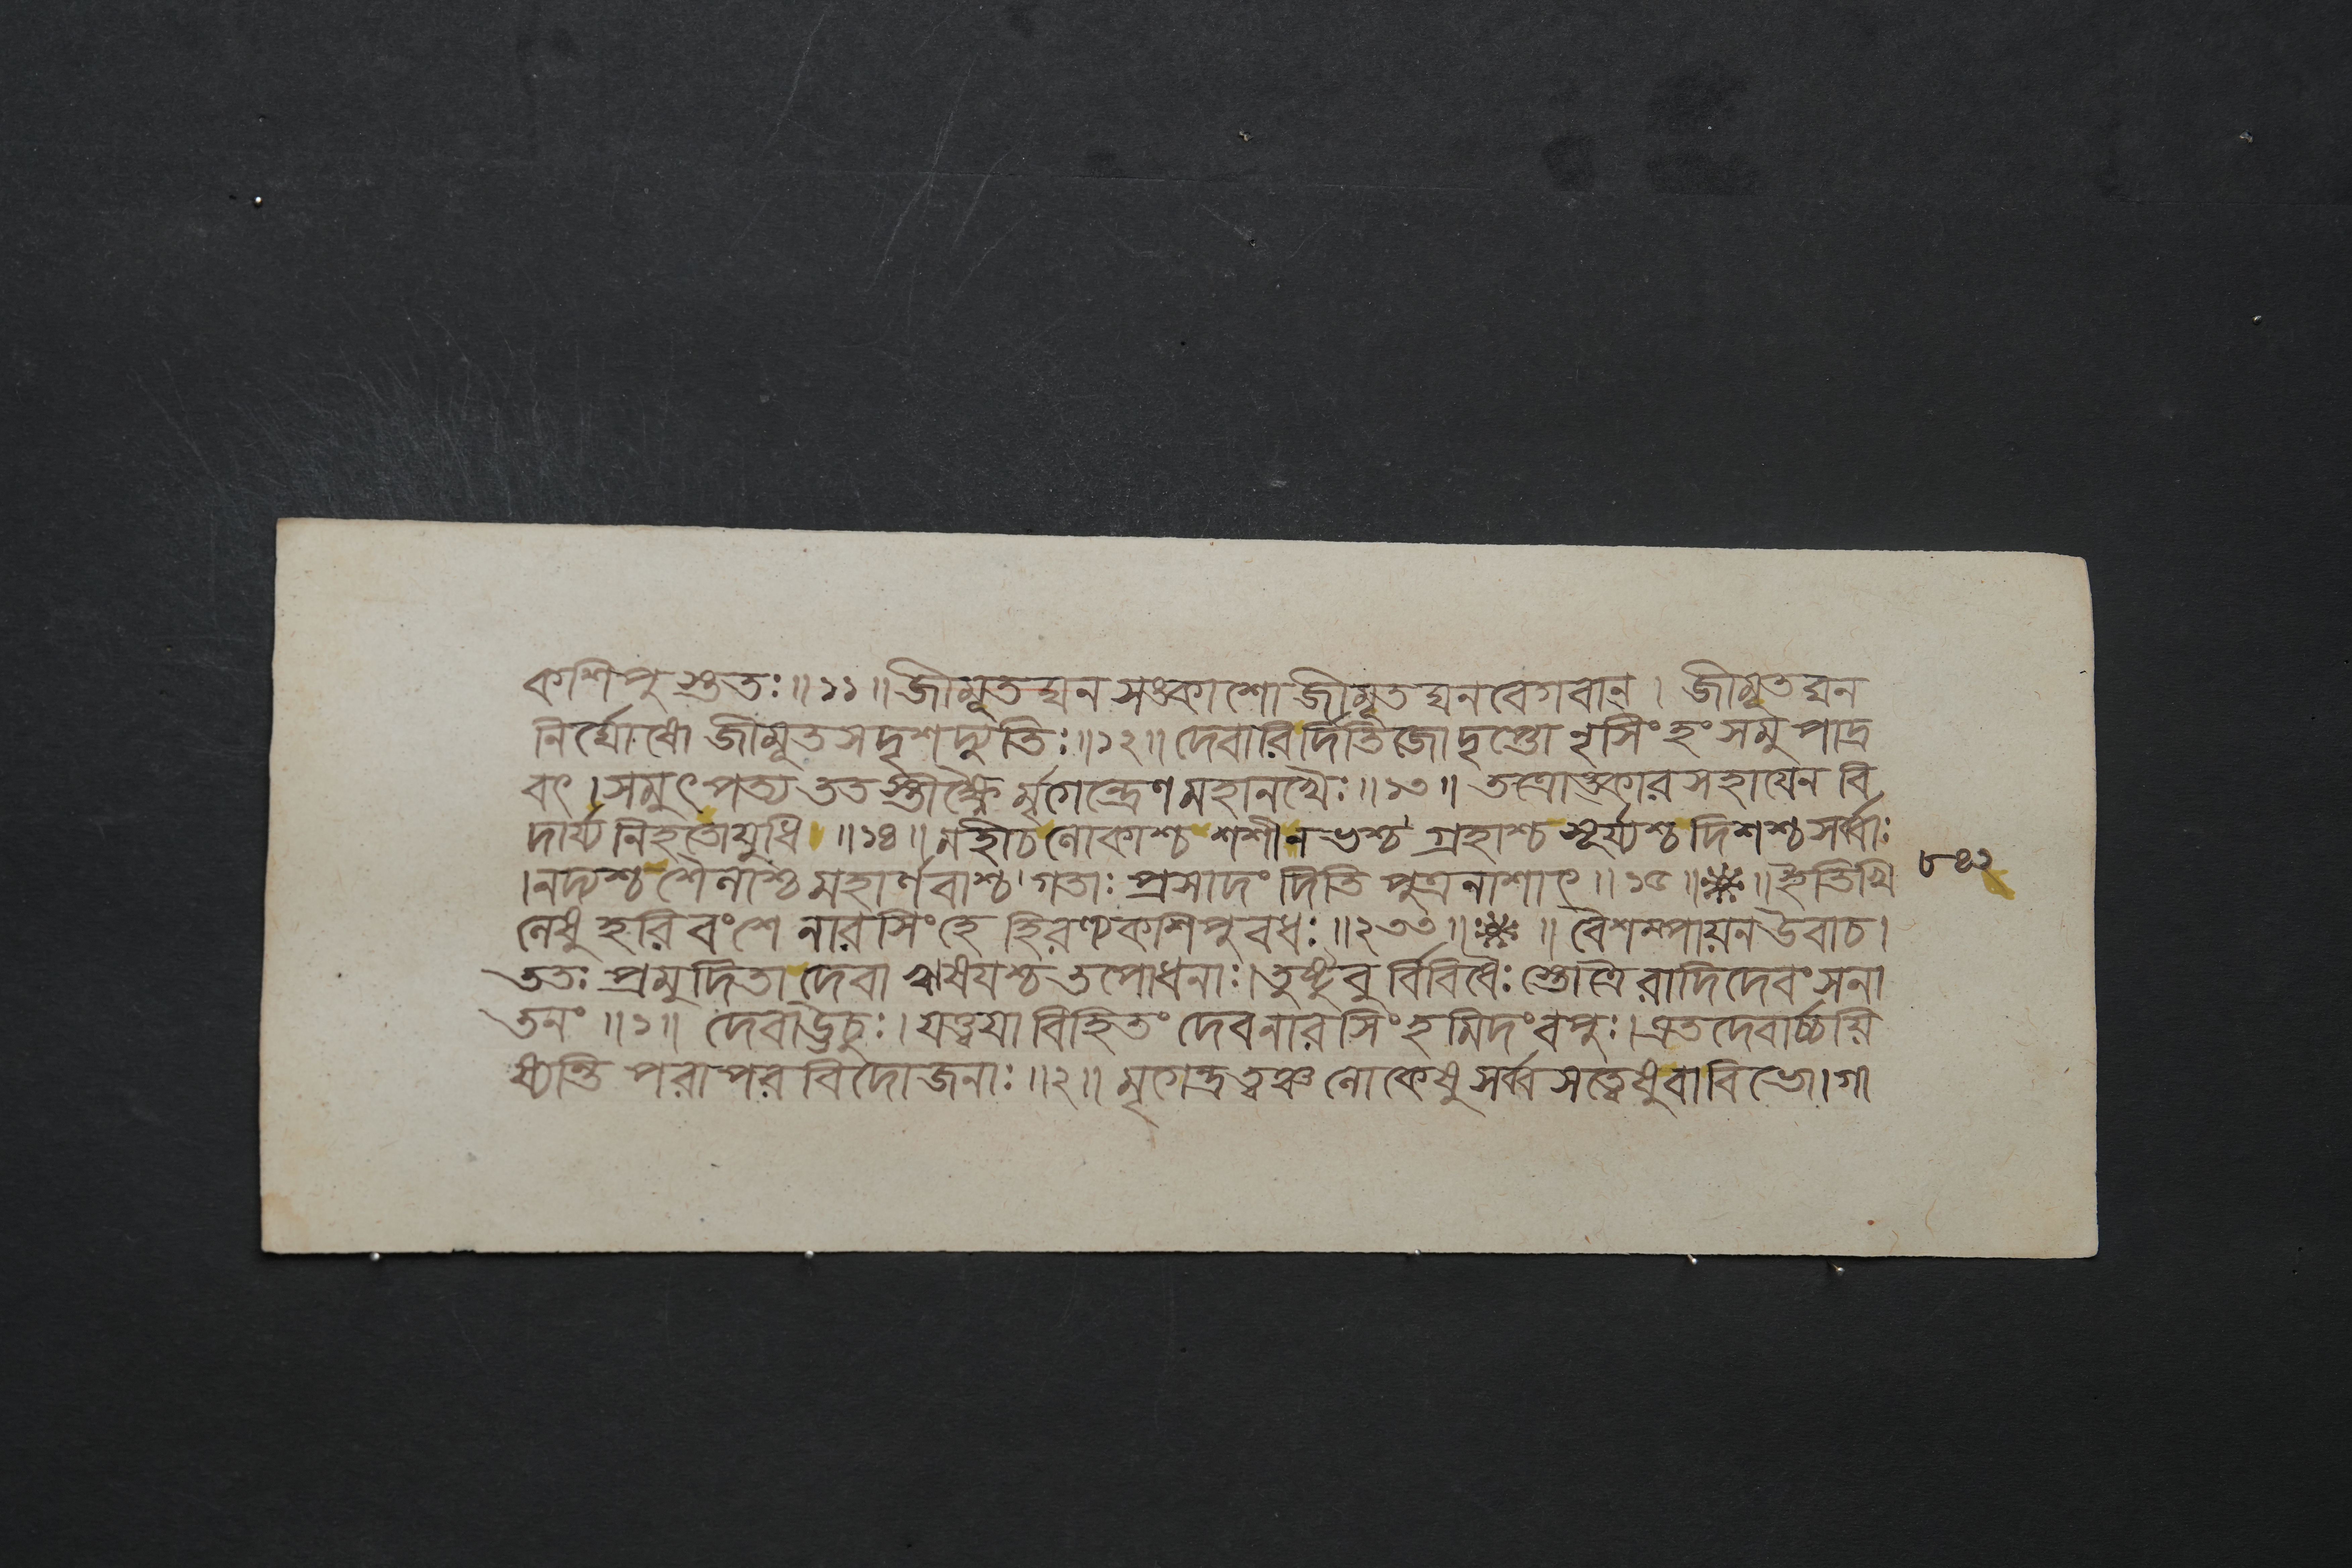 কশিপুস্ততঃ॥১১॥জীমূতঘন সঙ্কাশো জীমূতঘনবেগবান্। জীমূতঘন
নির্ঘোষো জীমূতসদৃশদ্যুতিঃ॥১২॥দেবারির্দিতিজো দৃপ্তো নৃসিংহং সমুপাদ্র
বৎ।সমুৎপত্য ততস্তীক্ষ্ণৈ র্মৃগেন্দ্রেণ মহানখৈঃ॥১৩॥ তত্রোঙ্কার সহায়েন বি
দার্য্য নিহতো যুধি ॥১৪॥মহীচ লোকাশ্চ শশী নভশ্চ গ্রহাশ্চ সূর্য্যশ্চ দিশশ্চ সর্ব্বাঃ
।নদ্যশ্চ শৈলাশ্চ মহার্ণবাশ্চ গতাঃ প্রসাদং দিতিপুত্রনাশাৎ॥১৫॥❋॥ইতি খি
লেষু হরিবংশে নারসিংহে হিরণ্যকশিপুবধঃ॥২৩৩॥❋॥ বৈশম্পায়ন উবাচ।
ততঃ প্রমুদিতা দেবা ঋষয়শ্চ তপোধনাঃ।তুষ্টুবু র্বিবিধৈঃ স্তোত্রৈ রাদিদেবং সনা
তনং ॥১॥ দেবা ঊচুঃ।যত্ত্বয়া বিহিতং দেব নারসিংহমিদং বপুঃ।এতদেবার্চ্চয়ি
ষ্যন্তি পরাপরবিদো জনাঃ॥২॥ মৃগেন্দ্রত্বঞ্চ লোকেষু সর্ব্বসত্ত্বেষু বা বিভো।গা
৮৪২